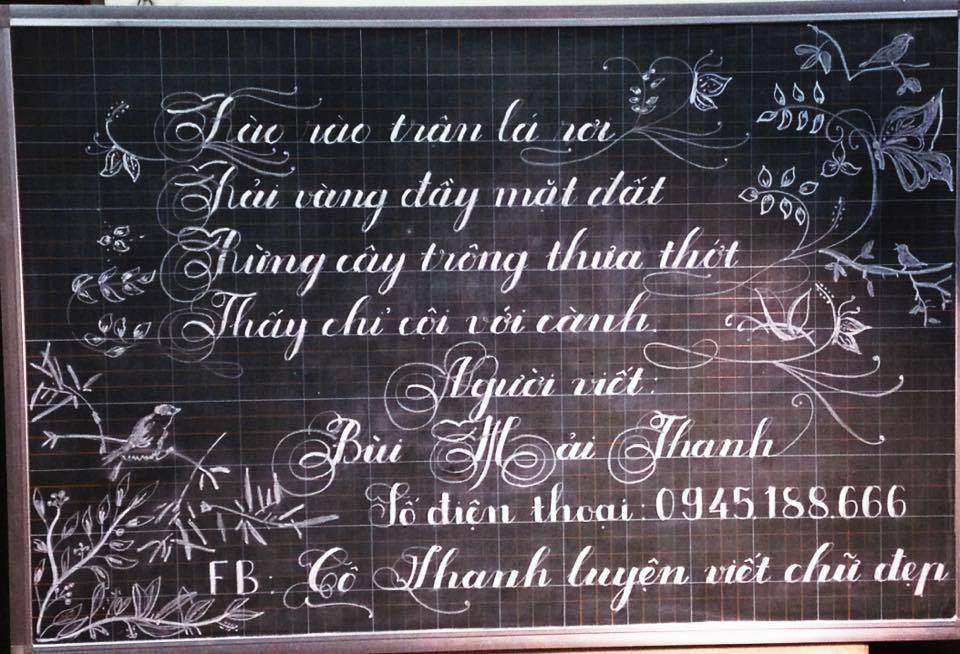 Rào rào trận lá rơi
Rải vàng đầy mặt đất
Rừng cây trông thưa thớt
Thấy chỉ cội với cành.
Người viết:
Bùi Hải Thanh
Số điện thoại: 0945.188.666
FB: Cô Thanh luyện viết chữ đẹp